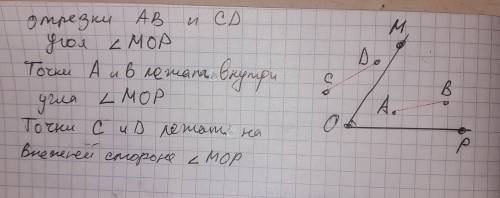 отрезки AB и CD
угол ∠MOP
Точки A и B лежат внутри
угла ∠MOP
Точки C и D лежат на
внешней стороне ∠MOP
M
D
C
B
A
O
P